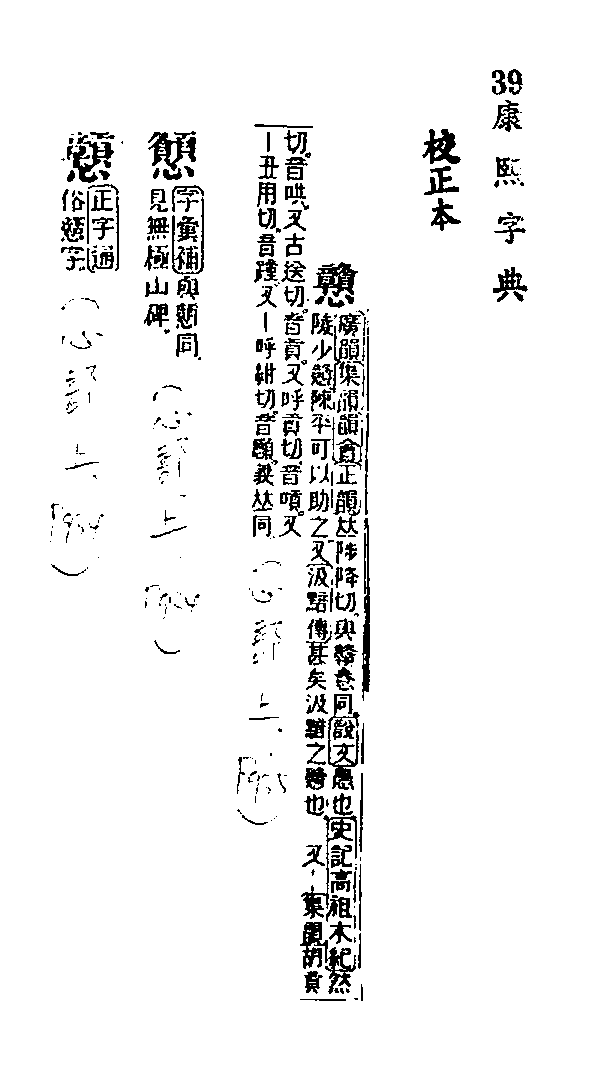 39康熙字典
校正本
戇
廣韻集韻韻會正韻𠀤陟降切。與贛惷同。說文愚也。史記高祖本紀然
陵少戇陳平可以助之又汲黯傳甚矣汲黯之戇也。又|集韻胡貢
切。音哄。又古送切。音貢。又呼貢切。音嗊。又
|丑用切。音蹱。又|呼紺切。音顑。義𠀤同。(心部上.
字彙補與戇同。
見無極山碑。(心部.上. P934)
正字通
俗戇字。(心部上. P934)